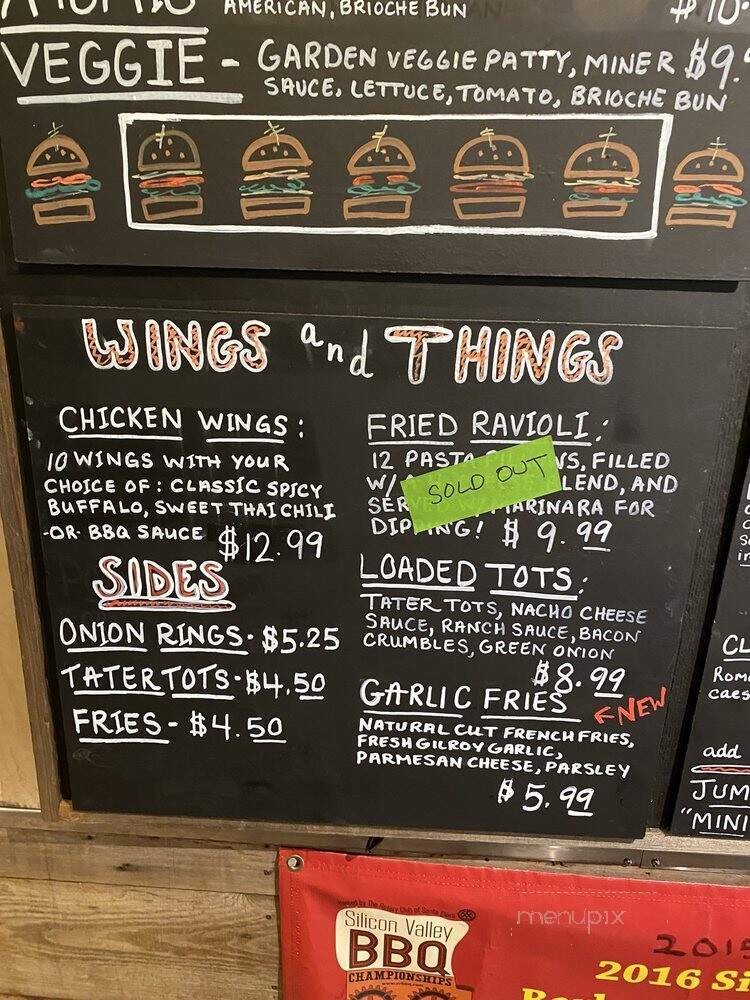 AMERICAN, BRIOCHE BUN
$10.
VEGGIE - GARDEN VEGGIE PATTY, MINER $9.
SAUCE, LETTUCE, TOMATO, BRIOCHE BUN
WINGS and THINGS
CHICKEN WINGS:
10 WINGS WITH YOUR
CHOICE OF: CLASSIC SPICY
BUFFALO, SWEET THAI CHILI
-OR- BBQ SAUCE $12.99
SIDES
ONION RINGS- $5.25
TATER TOTS- $4.50
FRIES - $4.50
FRIED RAVIOLI:
12 PASTA WS, FILLED
W/ LEND, AND
SER MARINARA FOR
DIPPING! $9.99
SOLD OUT
LOADED TOTS:
TATER TOTS, NACHO CHEESE
SAUCE, RANCH SAUCE, BACON
CRUMBLES, GREEN ONION
$8.99
GARLIC FRIES
←NEW
NATURAL CUT FRENCH FRIES,
FRESH GILROY GARLIC,
PARMESAN CHEESE, PARSLEY
$5.99
CL
Rom
caes
add
JUM
"MINI
menupix
Silicon Valley
BBQ
CHAMPIONSHIPS
2015
2016 Si